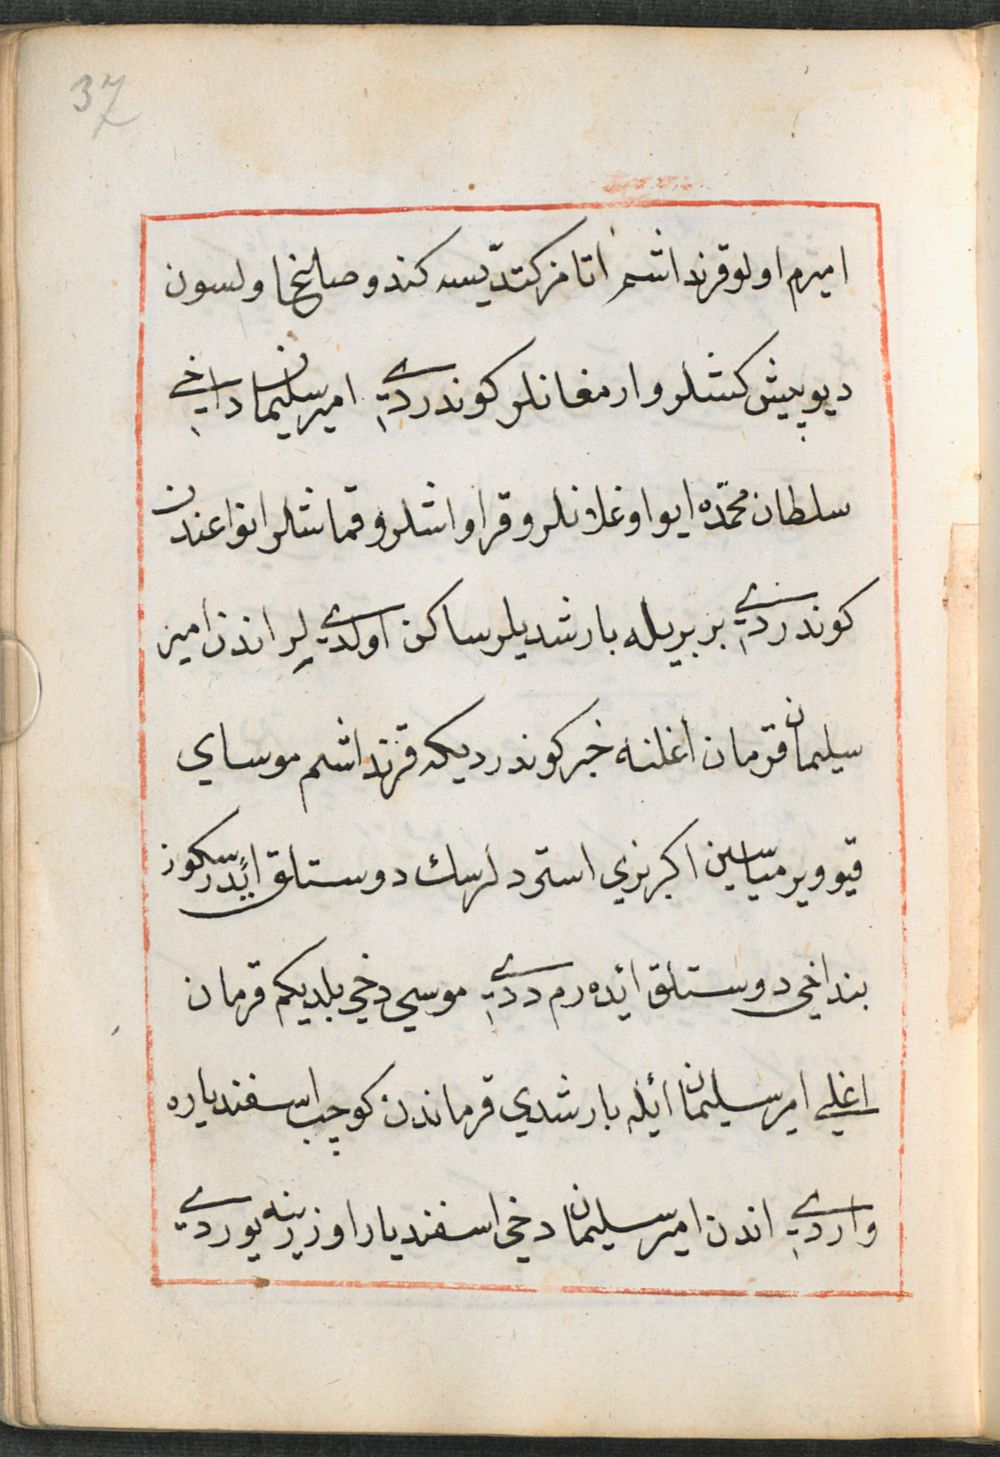 37
اميرم اولو قرنداشم اتامز كتديسه كندو صاغ اولسون
ديو پيشكشلر و ارمغانلر كوندردي امير سليمان داخي
سلطان محمّده ايو اوغلانلر و قراواشلر و قماشلر انواعندن
كوندردي بر بريله بارشديلر ساكن اولديلر اندن امير
سليمان قرمان اغلنه خبر كوندرديكه قرنداشم موساي
قيوويرمياسين اكر بزي استر دلرسك دوستلق ايدرسكوز
بنداخي دوستلق ائده رم ددي موسي دخي بلديكم قرمان
اغلي امر سليمان ائيله بارشدي قرماندن كوچب اسفندياره
واردي اندن امير سليمان دخي اسفنديار اوزرينه يوردي